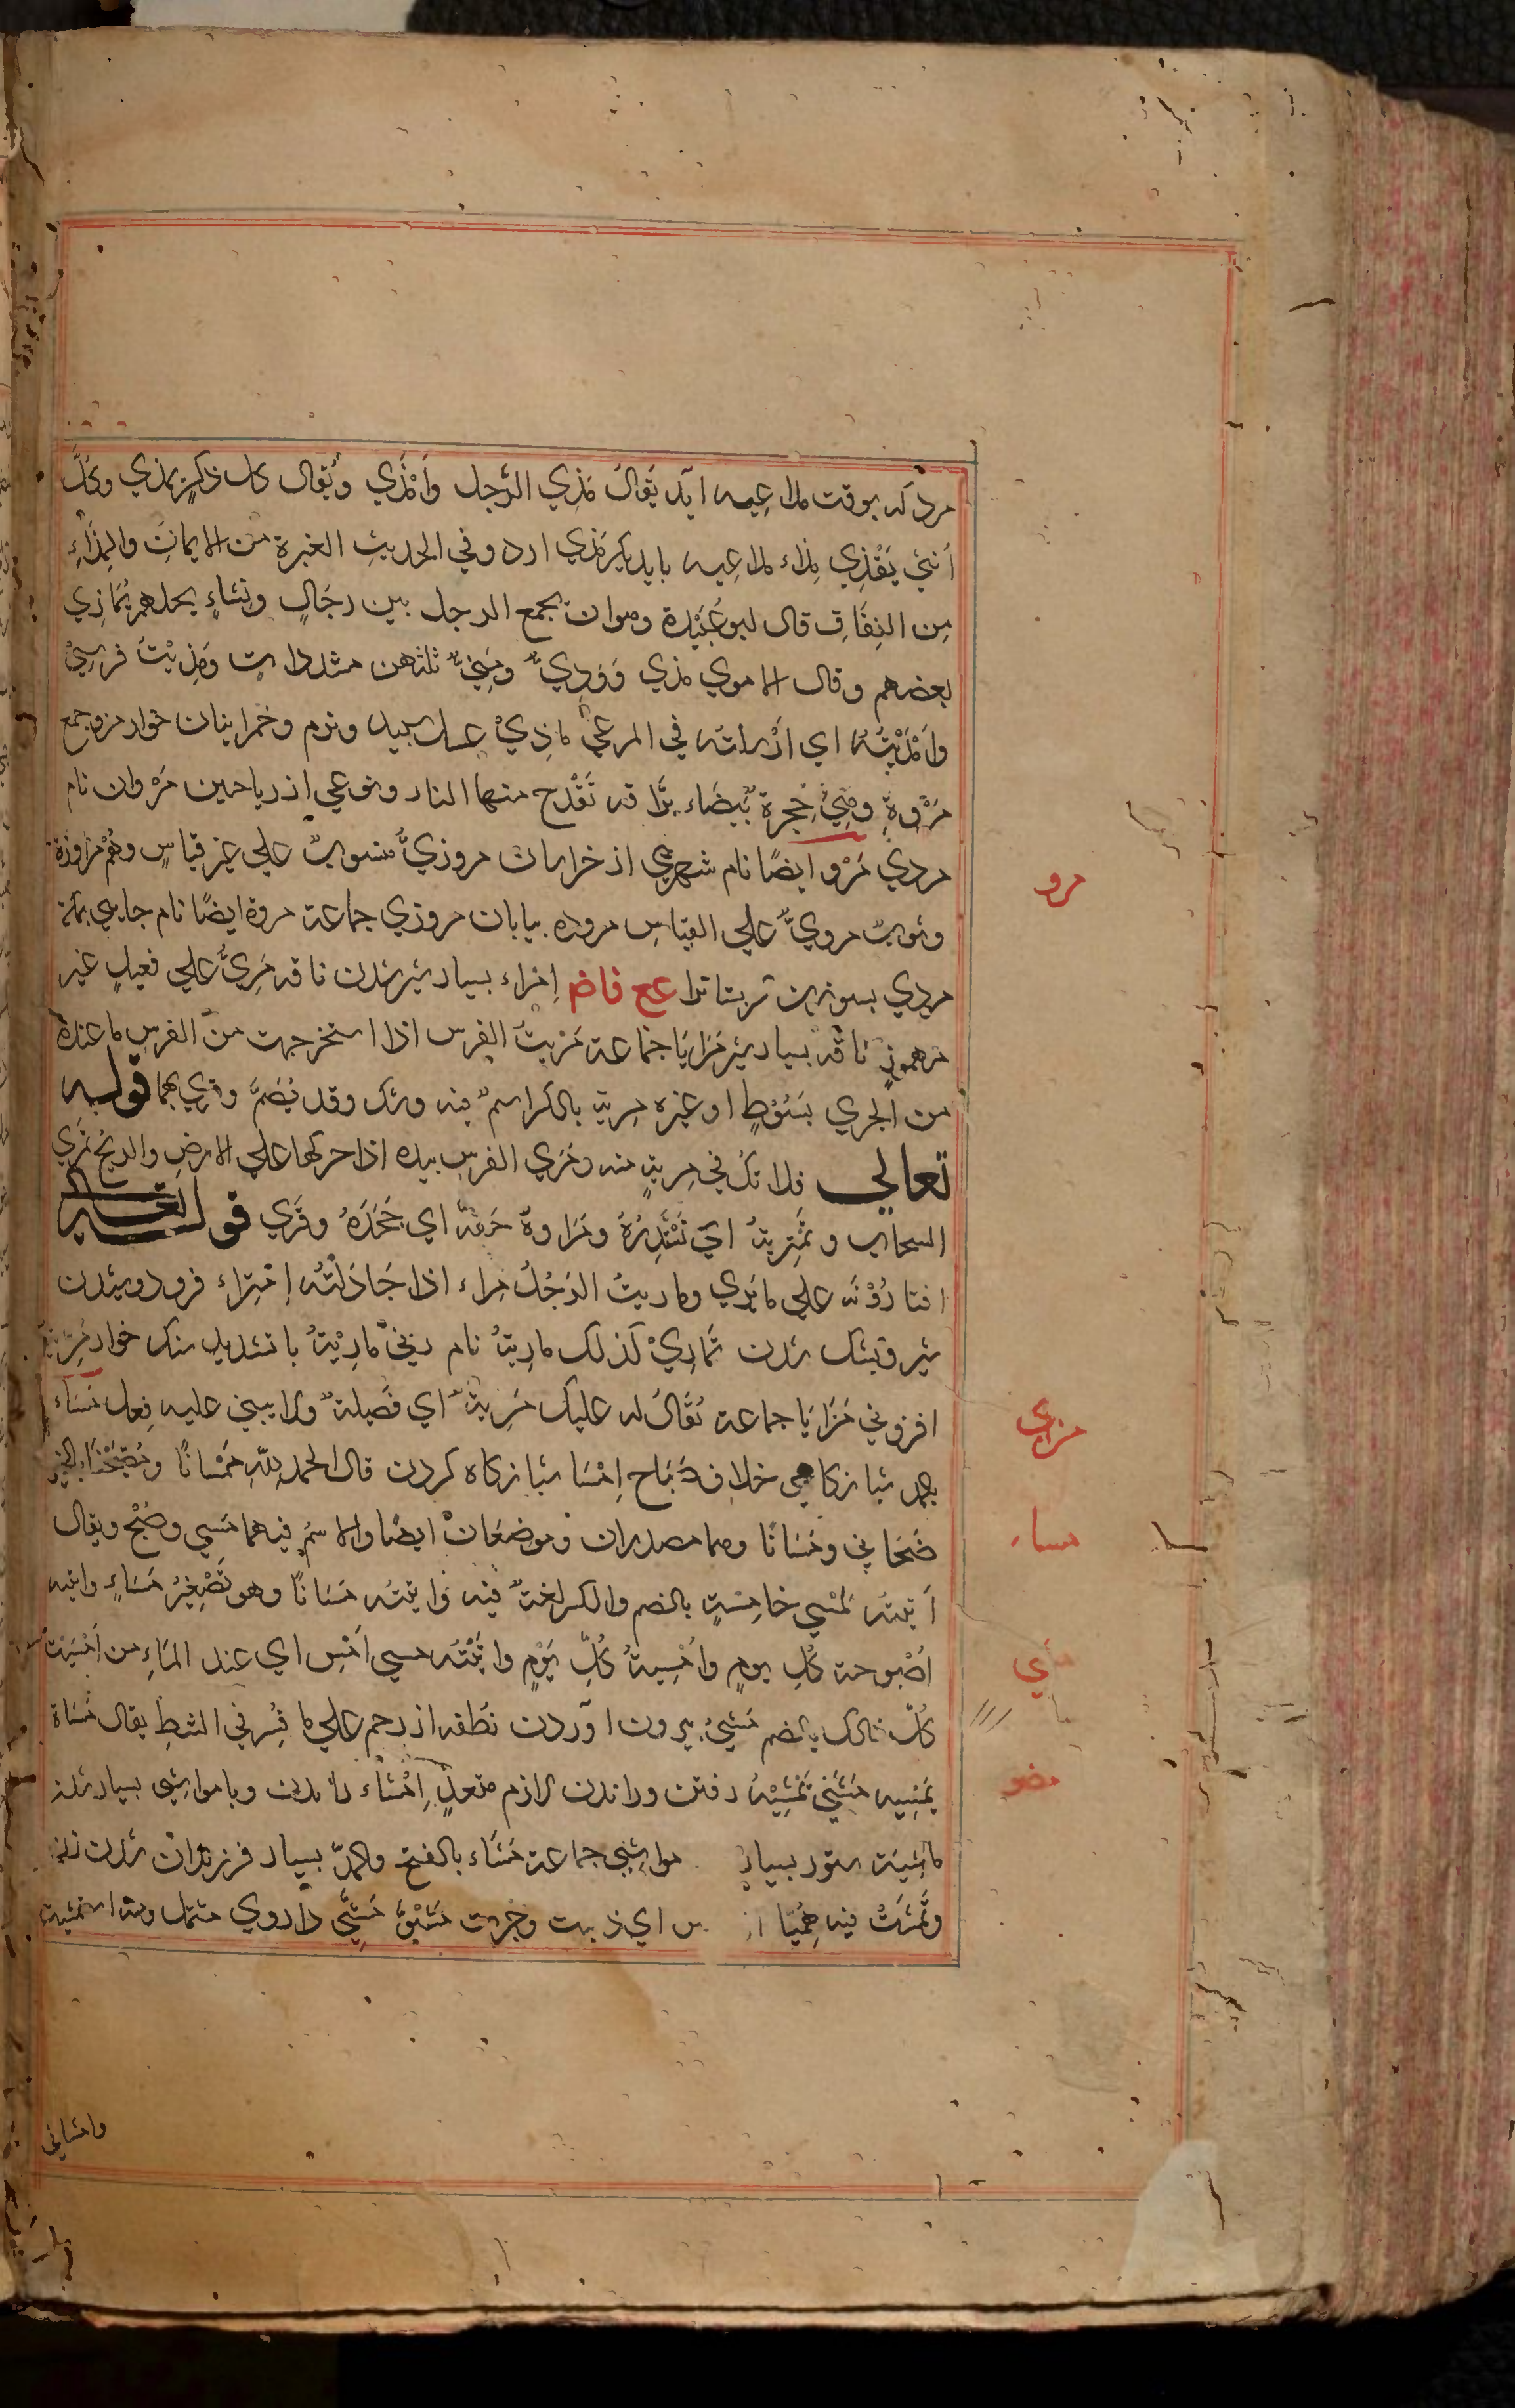 مرد که بوقت ملاعبه آید یُقالُ مَذِي الرَّجل وَاَمْذَي وَیُقال کل ذَکَرٍ یمذي وکلُّ
اُنثي یَقْذِي مِذاء ملاعبه باید یکر مَذي ارد وفي الحدیثِ الغیرة من الایمانِ والمِذَاءِ
مِن النِفَاقِ قال ابوعُبَیْدة وهو ان یجمع الرجل بین رِجَالٍ ونِسَاءٍ یحلهم یُمَاذِي
بعضهم وقال الاموي مذي وَوَدِيٌّ ومَنِيٌّ ثلثهن مشددات وَمَذَیْتُ فرسِيْ
وَاَمْذَیْتُهُ اي اَرْسلتُه في المرعي ماذِيْ عسل سپید ونرم وخمر اینان خوار مرو جمع
مَرْوةٍ وهِيَ حِجرة بَیضَاء برَّاقه تَقْدح منها النار ونوعي از ریاحین مَرْوان نام
مردي مَرْو ایضًا نام شهري از خراسان مروزيٌّ منسوبٌ علي غیر قیاسٍ وهُمْ مَراوزة
وثوبٌ مرويٌّ علي القیاسِ مروده بیابان مروزي جماعة مروة ایضًا نام جایي بمکة
مردي بسوزن تربتاترا عج فاض اِمراء بسیار شیر شدن ناقه مَرِيٌّ علي فعیلٍ غیر
مرهموزٍ ناقه بسیار شیر مَرَایَا جَماعة مَرَیتُ الفرس اذا استخرجت مِنَ الفرسِ ما عنده
من الجري بِسَوْطٍ او غیره مریة بالکسر اسمٌ فیه وشک وقد یُضَمُّ وقري بهما قوله
تعالي فلا تکُ في مِریةٍ منه ومَري الفرس بیده اذا حرکها علي الارضِ والریحُ تَمري
السحاب وتمتَریهُ اي تَسْتَدِرُهُ ومَراوهُ حَقَّه اي جَحَدَهُ وقُري قوله تعالي
افتمارُوْنَه علي ما یَري وماریتُ الرَجُلَ مِراء اذا جَادَلتُه اِمْتِراء فرود وشیدن
شیر وبشک شدن تَمَارِيْ کذلک ماریَةُ نام زنيٌ مارِیَّةُ با تشدید سنک خوار مَرِیَّة
افزوني مَزَایَا جماعة یُقَالُ له علیک مَزِیَّةٌ اي فَضِیلةٌ ولا یبني علیه فِعل مَسَاء
بالمد شبانکاهي خلاف صَبَاح اِمْسَا شبانکاه کردن قال الحمدُ لِلّهِ مُمْسَانًا ومُصْبَحَنَا بالخیر
صَبَّحَانِي ومَسَانَا وهما مصدران وموضعَانْ ایضًا والاسمُ فیهما مَسِي وصُبْح ویقال
اَتیتُه لمُسي خامِسَةٍ بالضم والکسر لغةٌ فیه وَاتیتُه مُسَانًا وهو تَصْغِیرُ مَسَاءٍ واتیته
اُصْبوحة کُلِ یومٍ واُمْسِیةَ کُلِّ یَوْمٍ واتَیْتُه مسي اَمْسِ اي عند المَسَاءِ من اَمْسَیْتَ
کُلّ ذالک بالضم مَسْيٌ بیرون آوردن نطفه از رحم علي ما فُسِّر في السَطو یقال مَسَاهُ
یَمْسِیه مَشي تَمْشِیَةُ رفتن وراندن لازم متعدٍّ اِمْشَاء راندن وبا مواشي بسیار شدن
ماشِیَة ستور بسیار مواشي جماعة مَشَاء بالفتح والمدّ بسیار فرزندان شدن زن
وتَمَشَتْ فیه حُمَیَّا ا س اي ذهبت وجرت مَشُوٌّ مَشِيٌّ داروي مسهل ومنه استمشیت
وامشاني
مرو
مري
مساء
مشي
مضو